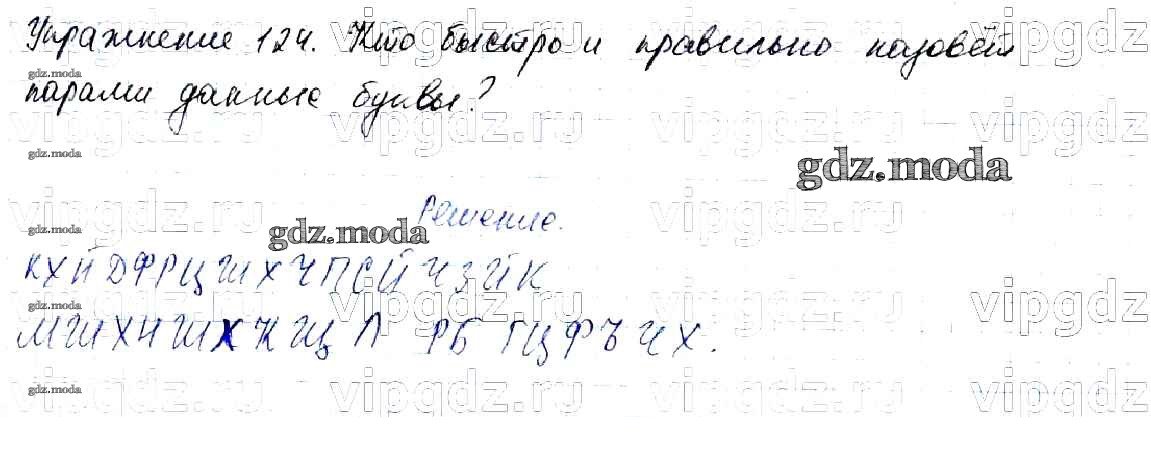 Упражнение 124. Кто быстро и правильно назовёт
парами данные буквы?
Решение.
К Х Й Д Ф Р Ц Ш Х Ч П С Й Ч З Й К
М Ш Х Н Ш Х К Щ П Р Б Г Ц Ф Ъ Ч Х.
gdz.moda
vipgdz.ru